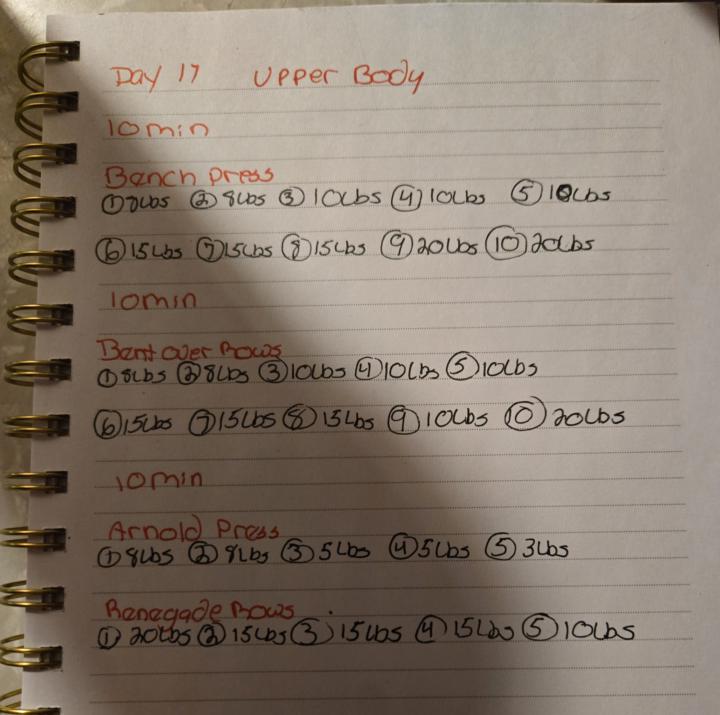 Day 17 Upper Body
10min
Bench press
① 8lbs ② 8lbs ③ 10lbs ④ 10lbs ⑤ 10lbs
⑥ 15lbs ⑦ 15lbs ⑧ 15lbs ⑨ 20lbs ⑩ 20lbs
10min
Bent over Rows
① 8lbs ② 8lbs ③ 10lbs ④ 10lbs ⑤ 10lbs
⑥ 15lbs ⑦ 15lbs ⑧ 15lbs ⑨ 10lbs ⑩ 20lbs
10min
Arnold Press
① 8lbs ② 8lbs ③ 5lbs ④ 5lbs ⑤ 3lbs
Renegade Rows
① 20lbs ② 15lbs ③ 15lbs ④ 15lbs ⑤ 10lbs